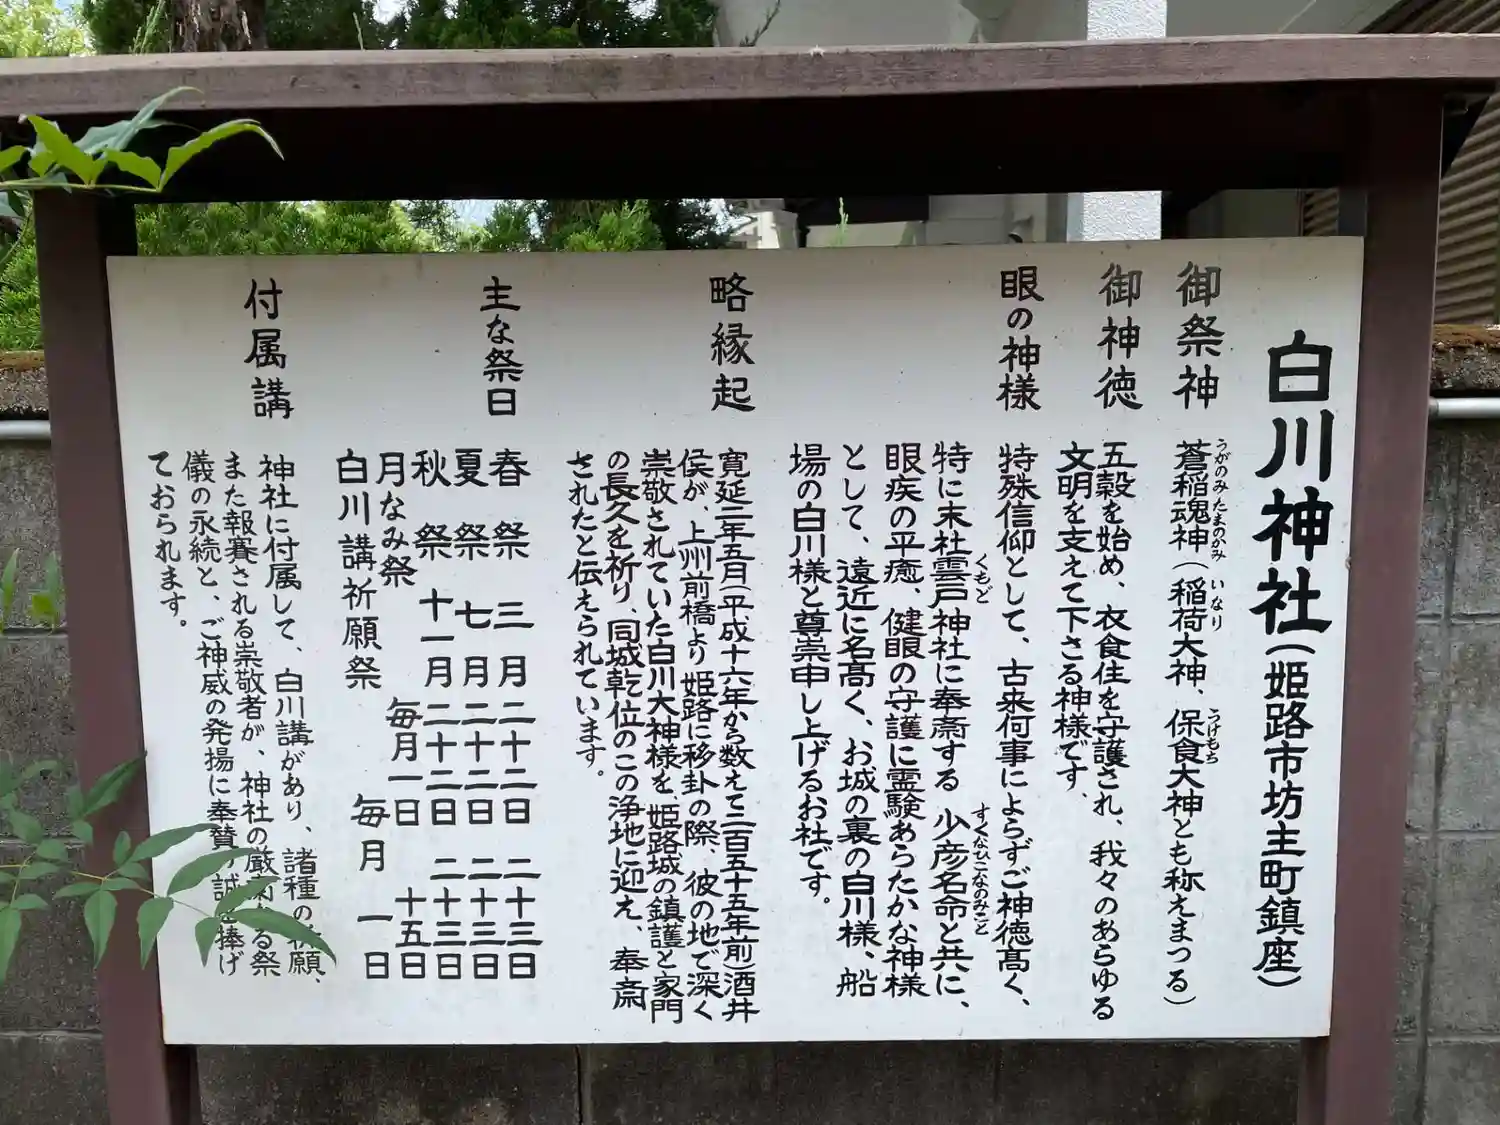 白川神社(姫路市坊主町鎮座)
御祭神
蒼稲魂神(稲荷大神、保食大神とも称えまつる)
うがのみたまのかみ いなり うけもち
御神徳
五穀を始め、衣食住を守護され、我々のあらゆる
文明を支えて下さる神様です。
眼の神様
特殊信仰として、古来何事によらずご神徳高く、
特に末社雲戸神社に奉斎する 少彦名命と共に、
くもど すくなひこなのみこと
眼疾の平癒、健眼の守護に霊験あらたかな神様
として、遠近に名高く、お城の裏の白川様、船
場の白川様と尊崇申し上げるお社です。
略縁起
寛延二年五月(平成十六年から数えて二百五十五年前)酒井
侯が、上州前橋より姫路に移卦の際 彼の地で深く
崇敬されていた白川大神様を、姫路城の鎮護と家門
の長久を祈り、同城乾位のこの浄地に迎え、奉斎
されたと伝えられています。
主な祭日
春祭 三月 二十二日 二十三日
夏祭 七月 二十二日 二十三日
秋祭 十一月 二十二日 二十三日
月なみ祭 毎月一日 十五日
白川講祈願祭 毎月 一日
付属講
神社に付属して、白川講があり、諸種の祈願、
また報賽される崇敬者が、神社の厳粛なる祭
儀の永続と、ご神威の発揚に奉賛の誠を捧げ
ておられます。